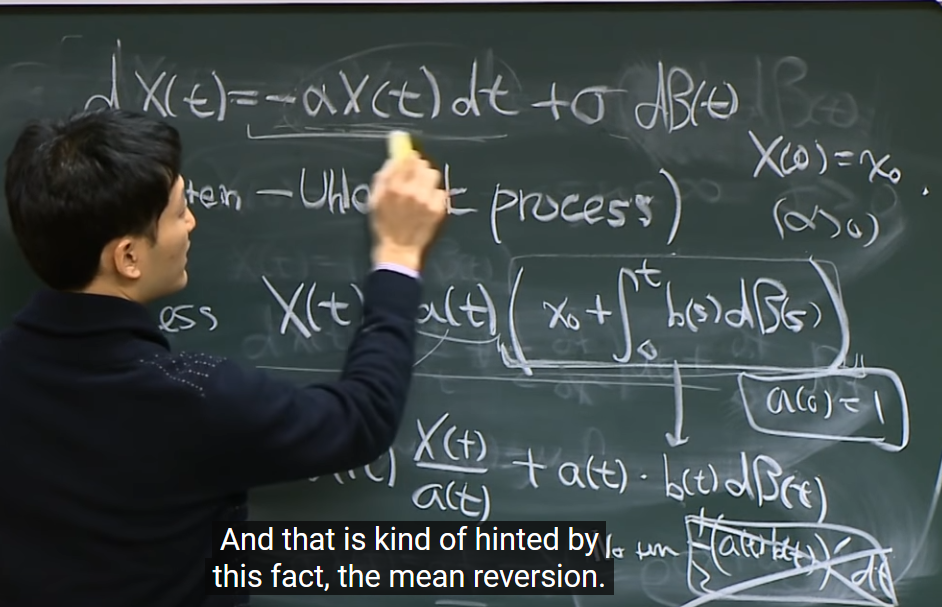 dX(t)=-αX(t)dt+σ dB(t)
X(0)=x₀.
(α>0)
process)
X(t) a(t)(x₀+∫₀ᵗ b(s)dB(s))
a(0)=1
X(t)/a(t) + a(t)·b(t)dB(t)
And that is kind of hinted by
this fact, the mean reversion.